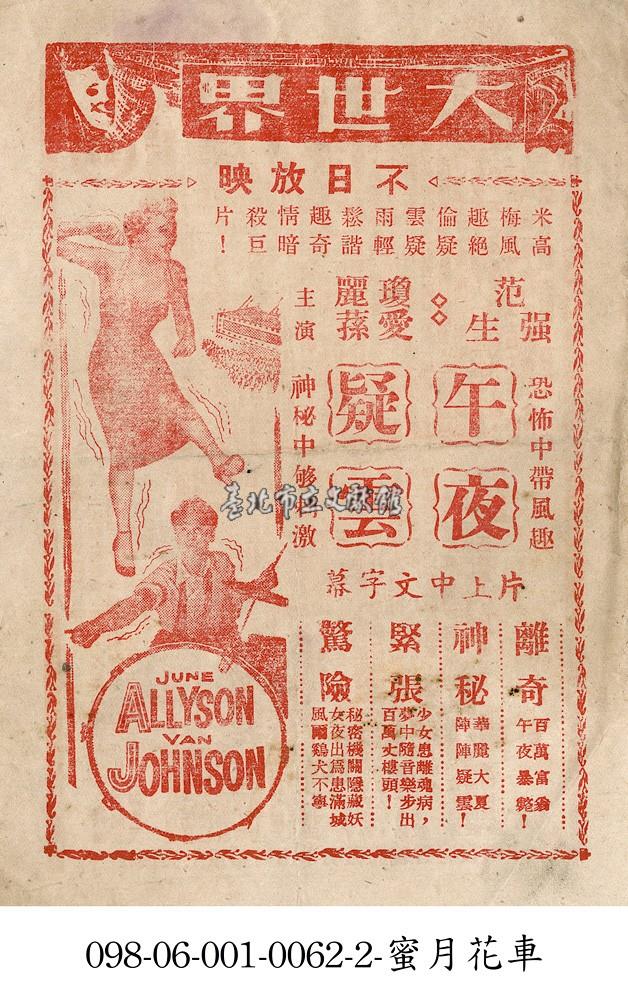 大世界
不日放映
米高
梅風
趣絕
倫疑
雲疑
雨輕
鬆諧
趣奇
情暗
殺巨
片！
范强生
瓊愛麗蓀
主演
恐怖中帶風趣
午夜
疑雲
神秘中够刺激
片上中文字幕
離奇
百萬富翁
午夜暴斃！
神秘
華麗大夏
陣陣疑雲！
緊張
少女患離魂病，
夢中隨音樂步出
百萬丈樓頭！
驚險
秘密機關隱藏妖
女夜出為患滿城
風雨鷄犬不寧
JUNE
ALLYSON
VAN
JOHNSON
臺北市立文獻館
098-06-001-0062-2-蜜月花車